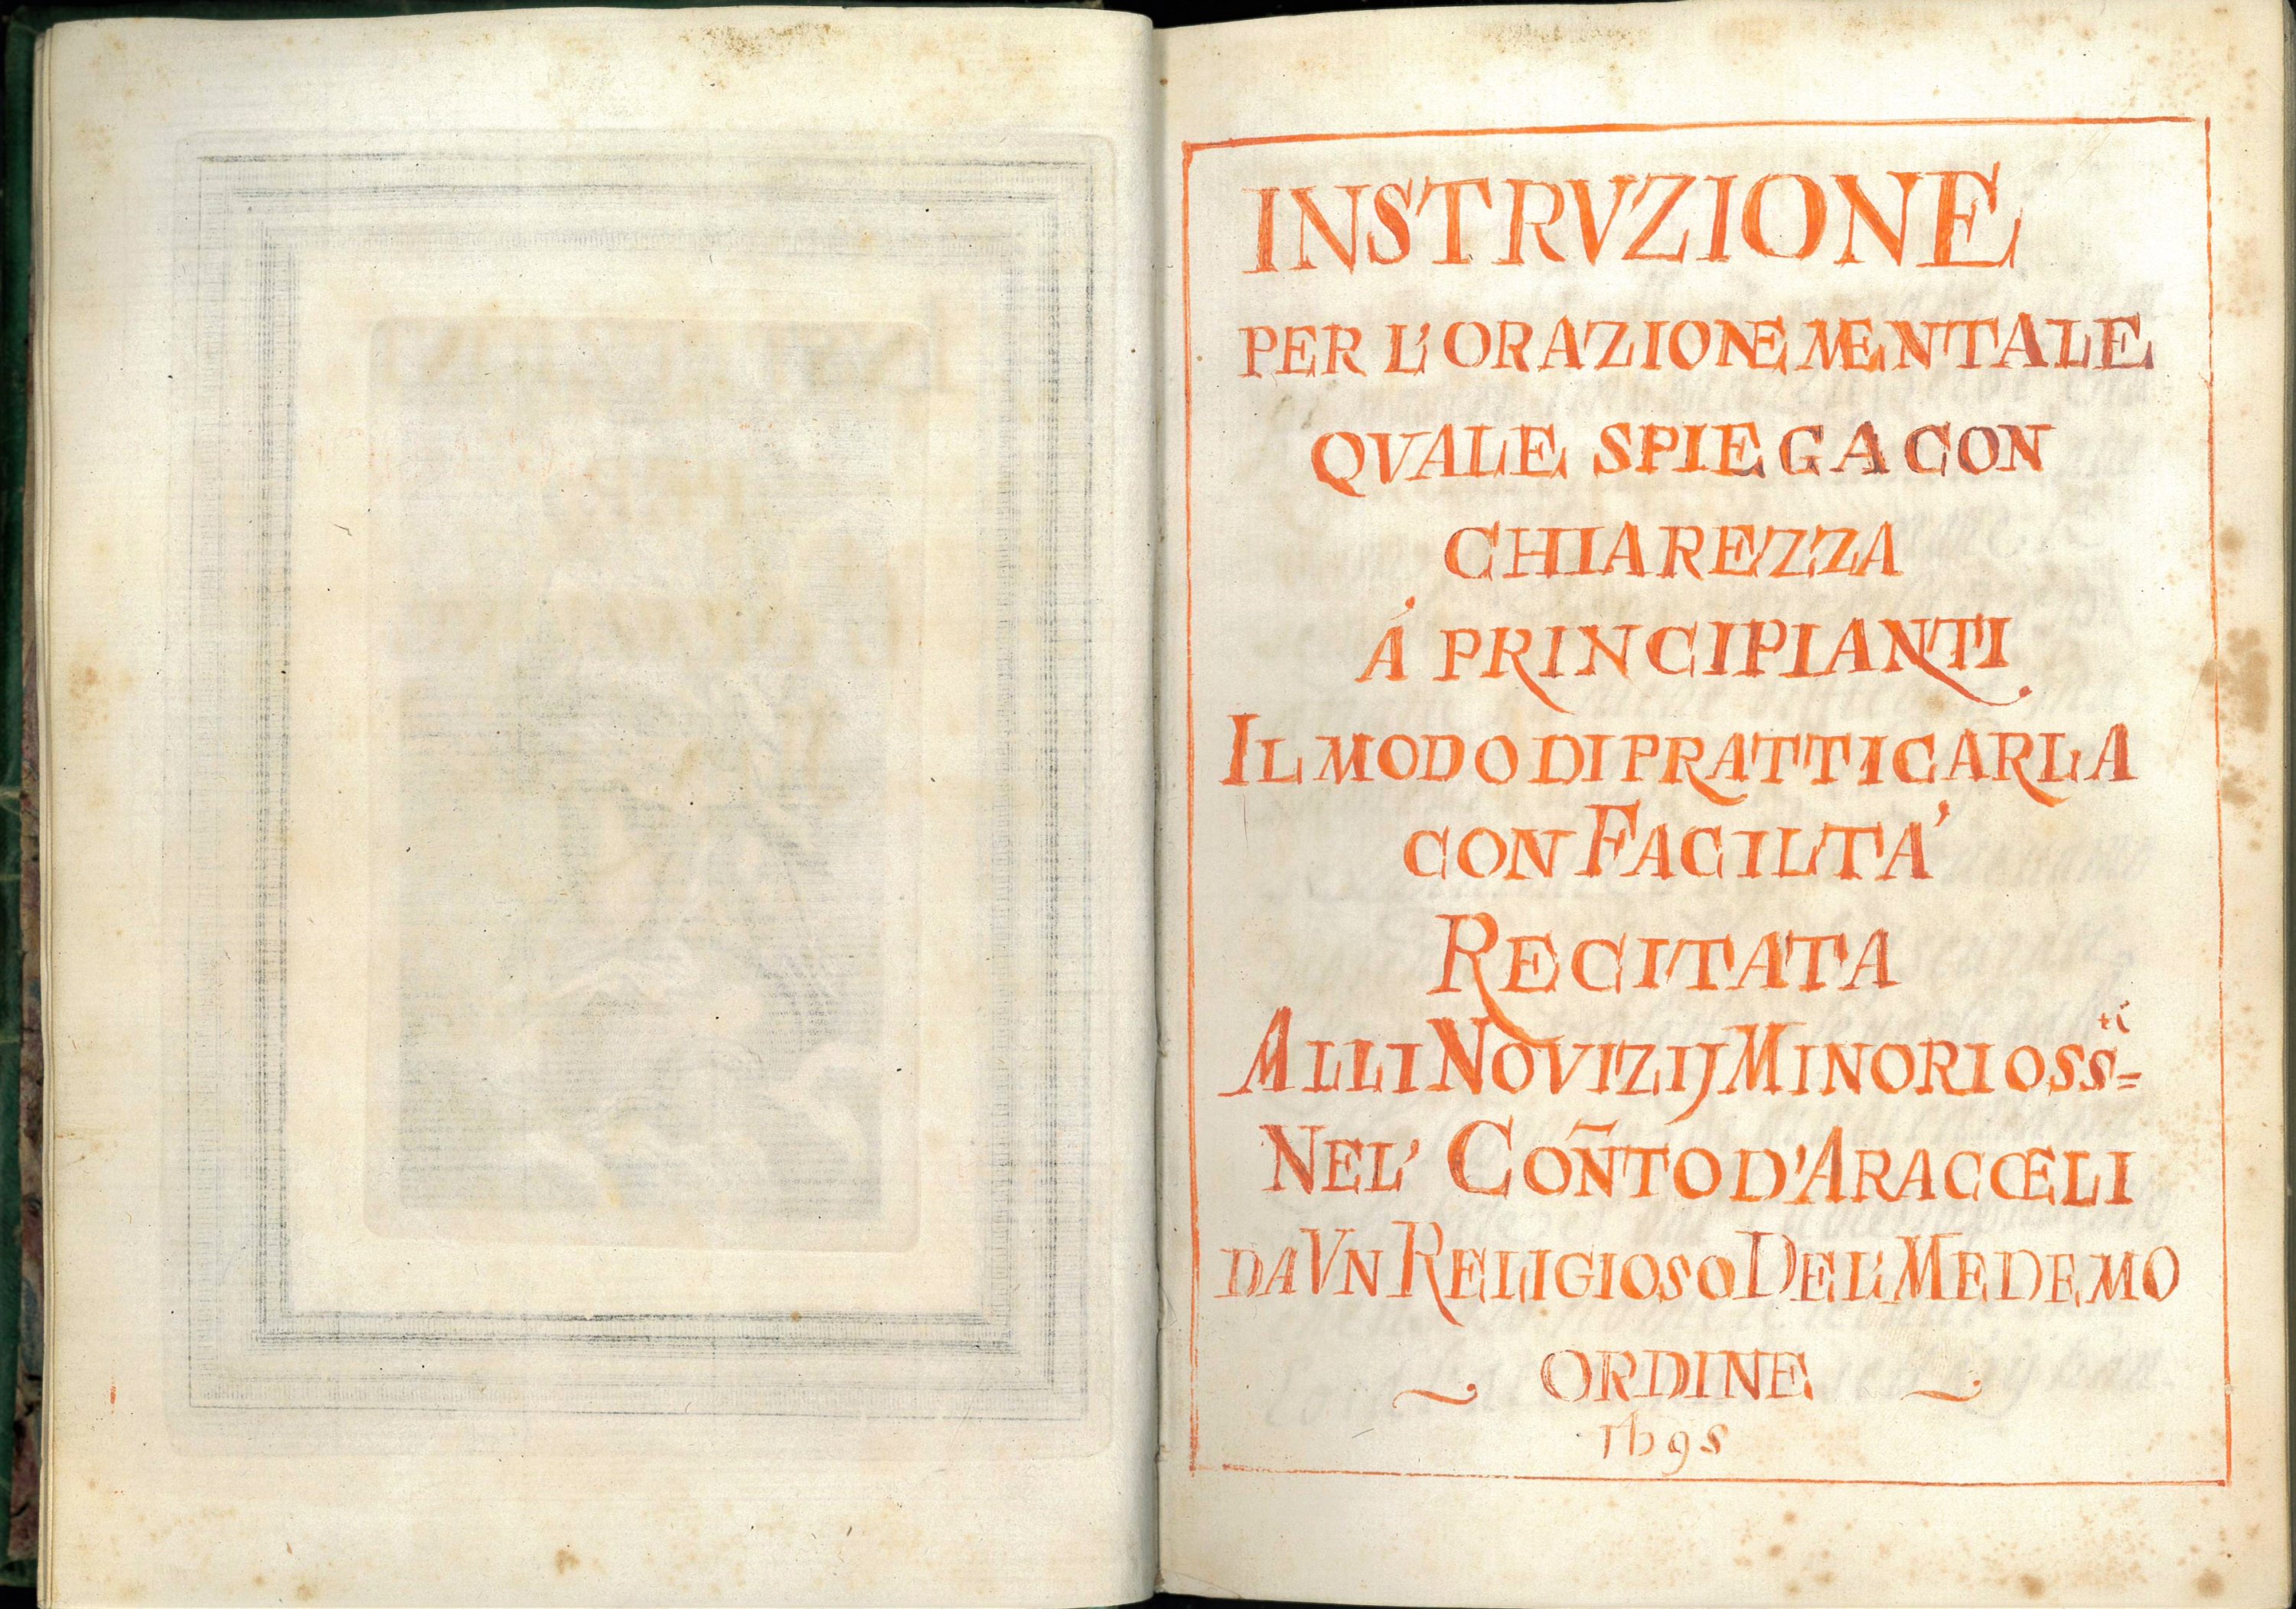 INSTRVZIONE
PER L'ORAZIONE MENTALE
QVALE SPIEGA CON
CHIAREZZA
Á PRINCIPIANTI
IL MODO DI PRATTICARLA
CON FACILTA'
RECITATA
ALLI NOVIZIJ MINORI OSSti=
NEL' COÑTO D'ARACŒLI
DA VN RELIGIOSO DEL' MEDEMO
ORDINE
1698